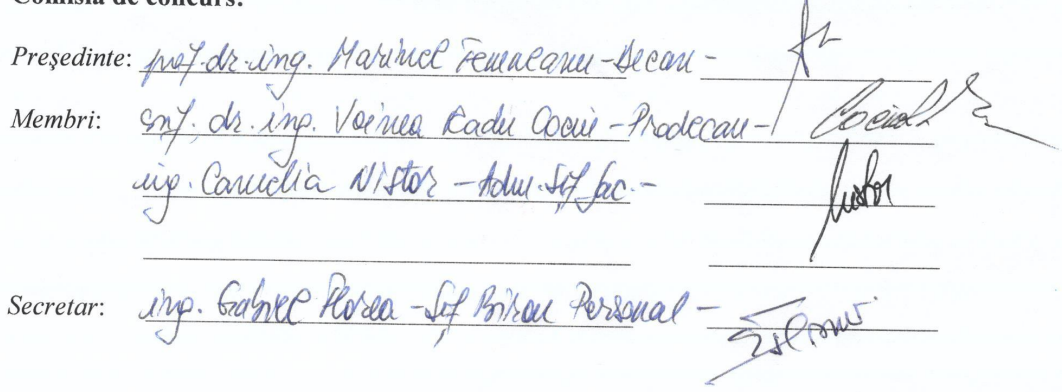 Comisia de concurs:
Președinte: prof. dr. ing. Marinel Temneanu - Decan -
Membri: conf. dr. ing. Voinea Radu Cociu - Prodecan -
ing. Camelia Nistor - Adm. Șef fac. -
Secretar: ing. Gabriel Florea - Șef Birou Personal -